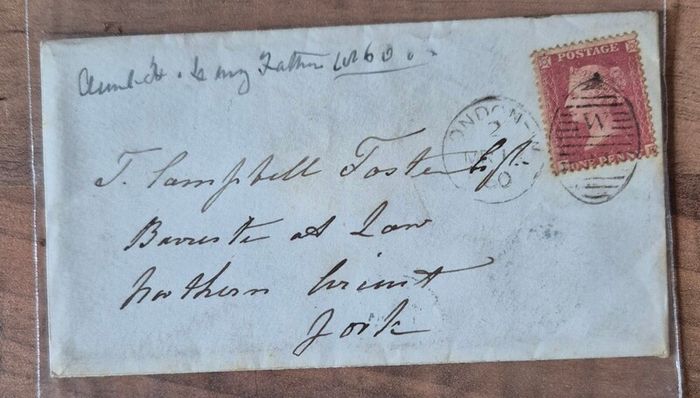 to my Father 1860
POSTAGE
ONE PENNY
LONDON-W
60
T. Campbell Foster Esqr
Barrister at Law
Northern Circuit
York